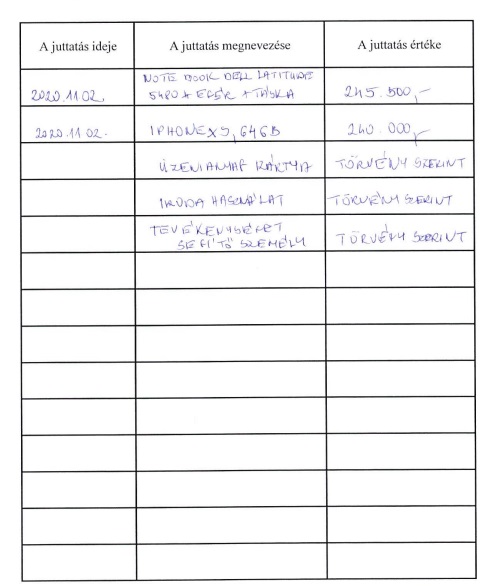 A juttatás ideje A juttatás megnevezése A juttatás értéke
NOTE BOOK DELL LATITUDE
2020.11.02. 5480 + EGÉR + TÁSKA 245.500,-
2020.11.02. IPHONE XS, 64GB 240.000,-
ÜZEMANYAG KÁRTYA TÖRVÉNY SZERINT
IRODA HASZNÁLAT TÖRVÉNY SZERINT
TEVÉKENYSÉGET
SEGÍTŐ SZEMÉLY TÖRVÉNY SZERINT